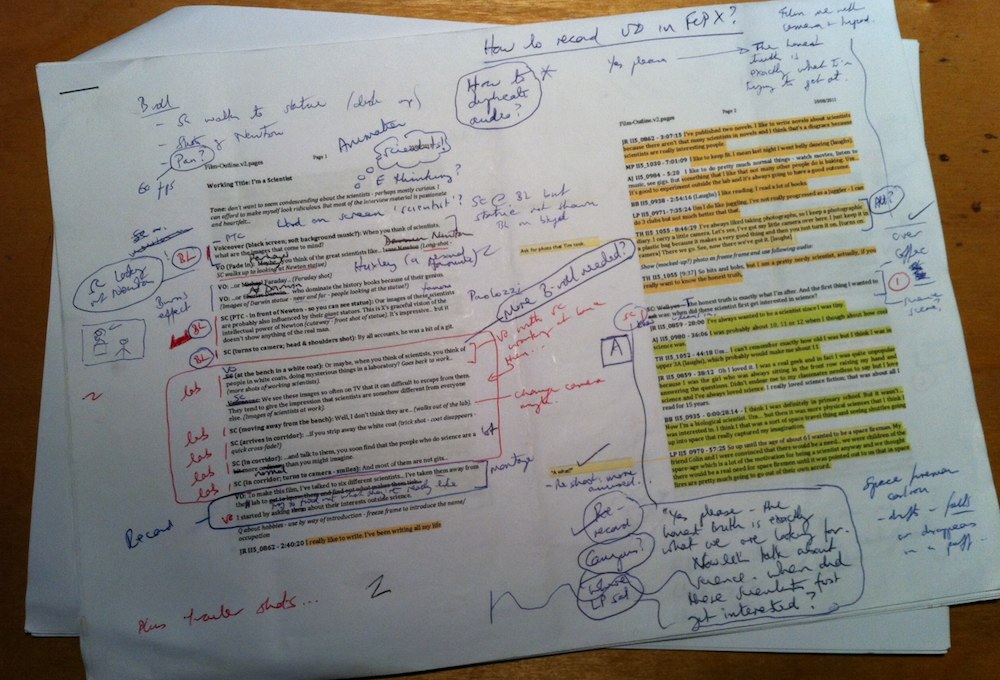 How to record VO in FCPX?
B-roll
- SC walks to statue (close up)
- Shots of Newton
- Pan?
60 fps
Animation
How to duplicate audio?
*
Yes please
The honest truth is exactly what I'm trying to get at.
Film-Outline v2.pages
Page 1
Working Title: I'm a Scientist
Tone: don't want to seem condescending about the scientists - perhaps mostly curious. I
can afford to make myself look ridiculous. But most of the interview material is passionate
and heartfelt...
Word on screen 'scientist'?
E thinking?
SC @ BL but
statue not shown
BL
Voiceover (black screen; soft background music?): When you think of scientists,
what are the images that come to mind?
VO (Fade in): you think of the great scientists like...
SC walks up to looking at Newton statue)
VO: ...or Faraday... (Faraday shot)
VO: ...or Darwin who dominate the history books because of their genius.
(Images of Darwin statue - near and far - people looking at the statue?)
SC (PTC - in front of Newton - so you can see statue): Our image of these
are probably also influenced by their giant statues. This is graceful vision of the
intellectual power of Newton (cutaway - front shot of statue). It's impressive.. but it
doesn't show anything of the real man.
SC (turns to camera; head & shoulders shot): By all accounts, he was a bit of a git.
SC (at the bench in a white coat): Or maybe, when you think of scientists, you think of
people in white coats, doing mysterious things in a laboratory? Goes back to work..
(more shots of working scientists).
We see these images so often on TV that it can difficult to escape from them.
They tend to give the impression that scientists are somehow different from everyone
else. (Images of scientists at work).
SC (moving away from the bench): Well, I don't think they are.. (walks out of the lab).
SC (arrives in corridor): ...if you strip away the white coat (trick shot - coat disappears -
quick cross fade?)
SC (in corridor): ...and talk to them, you soon find that the people who do science are a lot
more normal than you might imagine.
SC (in corridor; turns to camera - smiles): And most of them are not gits..
VO: To make this film, I've talked to six different scientists.. I've taken them away from
I started by asking them about their interests outside science.
Q about hobbies - use by way of introduction - freeze frame to introduce the name/
occupation
JR IJS_0862 - 2:40:20 I really like to write. I've been writing all my life
SC looking at Newton
Burns effect
BL
BL
BL
lab
lab
lab
lab
lab
Huxley (a
Paolozzi
More B-roll needed?
VO with SC
working at bench
then...
change camera
angle.
montage
Record
Plus trailer shots...
2
Film-Outline v2.pages
Page 2
JR IJS_0862 - 3:07:15 I've published two novels. I like to write novels about scientists
because there aren't that many scientists in novels and I think that's a disgrace because
scientists are really interesting people
MP IJS_1030 - 7:01:09 I like to keep fit. I mean last night I went belly dancing (laughs)
AJ IJS_0984 - 5:20 I like to do pretty much normal things - watch movies, listen to
music, see gigs. But something that I like that not many other people do is baking. Um..
It's good to experiment outside the lab and it's always going to have a good outcome.
BB IJS_0938 - 2:54:16 (Laughs) I like reading. I read a lot of books.
LP IJS_0971- 7:35:24 Um I do like juggling. I've not really progressed as a juggler - I can
do 3 clubs but not much better that that.
TH IJS_1055 - 8:46:29 I've always liked taking photographs, so I keep a photographic
diary. I carry a little camera. Let's see, I've got my little camera over here. I put keep it in
a plastic bag because it makes a very good thing and then you just turn it on, [turns on
camera] There we go. Say, now there we've got it. (laughs).
Show (mocked up?) photo on freeze frame and use following audio:
TH IJS_1055 [9:37] So bits and bobs, but I am a pretty nerdy scientist, actually, if you
really want to know the honest truth.
Ask for photo that Tim took.
The honest truth is exactly what I'm after. And the first thing I wanted to
ask was: when did these scientists first get interested in science?
JS IJS_0859 - 28:00 I've always wanted to be a scientist since I was tiny
AJ IJS_0980 - 36:06 I was probably about 10, 11 or 12 when I though about how cool
science was.
TH IJS_1052 - 44:18 Um... I can't remember exactly how old I was but I think I was in
upper 5A (laugh), which probably would make me about 15
JR IJS_0859 - 38:12 Oh I loved it. I was a total geek and in fact I was quite unpopular
because I was the girl who was always sitting in the front row raising my hand and
answering the questions. Didn't endear me to my classmates needless to say but I loved
science and I've always loved science. I really loved science fiction, that was about all I
read for 15 years.
BB IJS_0935 - 0:00:28.14 - I think I was definitely in primary school. But it wasn't..
Now I'm a biological scientist. Um... but then it was more physical sciences that I think I
was interested in. I think that was a sort of space traveling and seeing shuttles going
up into space that really captured my imagination.
LP IJS_0970 - 57:25 So up until the age of about 6 I wanted to be a space fireman. My
friend Colin and I were convinced that there would be a need.. we were children of the
space-age which is a lot of the motivation for being a scientist anyway and we thought
there'd be a real need for space firemen until it was pointed out to us that in space
fires are pretty much going to go out of their own accord.
"A what?"
- Re shoot; more
A
Pre-record
Campus?
where LP sat
"Yes please - the
honest truth is exactly
what we are looking for.
Now let's talk about
science. When did
these scientists first
get interested?
Space fireman
cartoon
- drift - fades
or disappears
in a puff...